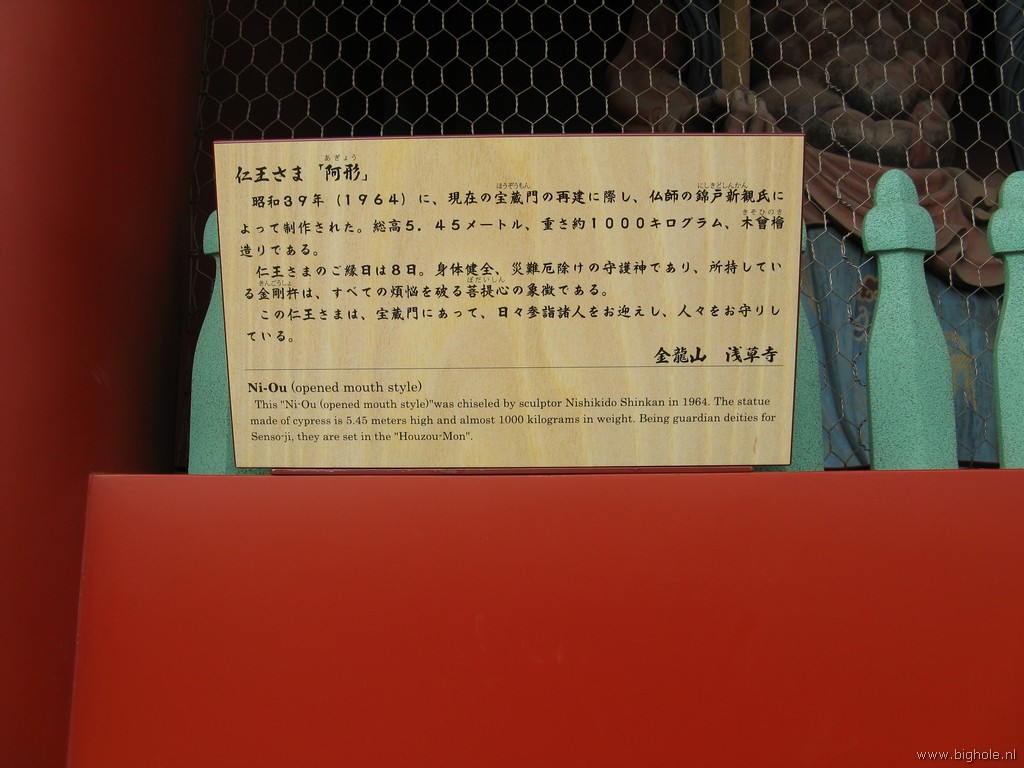 あぎょう
仁王さま「阿形」
ほうぞうもん にしきどしんかん
昭和39年(1964)に、現在の宝蔵門の再建に際し、仏師の錦戸新観氏に
きそひのき
よって制作された。総高5.45メートル、重さ約1000キログラム、木曾檜
造りである。
仁王さまのご縁日は8日。身体健全、災難厄除けの守護神であり、所持してい
こんごうしょ ぼだいしん
る金剛杵は、すべての煩悩を破る菩提心の象徴である。
この仁王さまは、宝蔵門にあって、日々参詣諸人をお迎えし、人々をお守りし
ている。
金龍山 浅草寺
Ni-Ou (opened mouth style)
This "Ni-Ou (opened mouth style)"was chiseled by sculptor Nishikido Shinkan in 1964. The statue
made of cypress is 5.45 meters high and almost 1000 kilograms in weight. Being guardian deities for
Senso-ji, they are set in the "Houzou-Mon".
www.bighole.nl